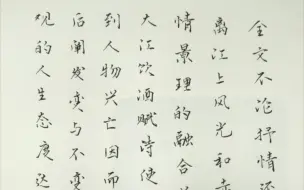 全文不论抒情还
离江上风光和
情景理的融合
大江饮酒赋诗使
到人物兴亡因而
后阐发变与不变
观的人生态度达